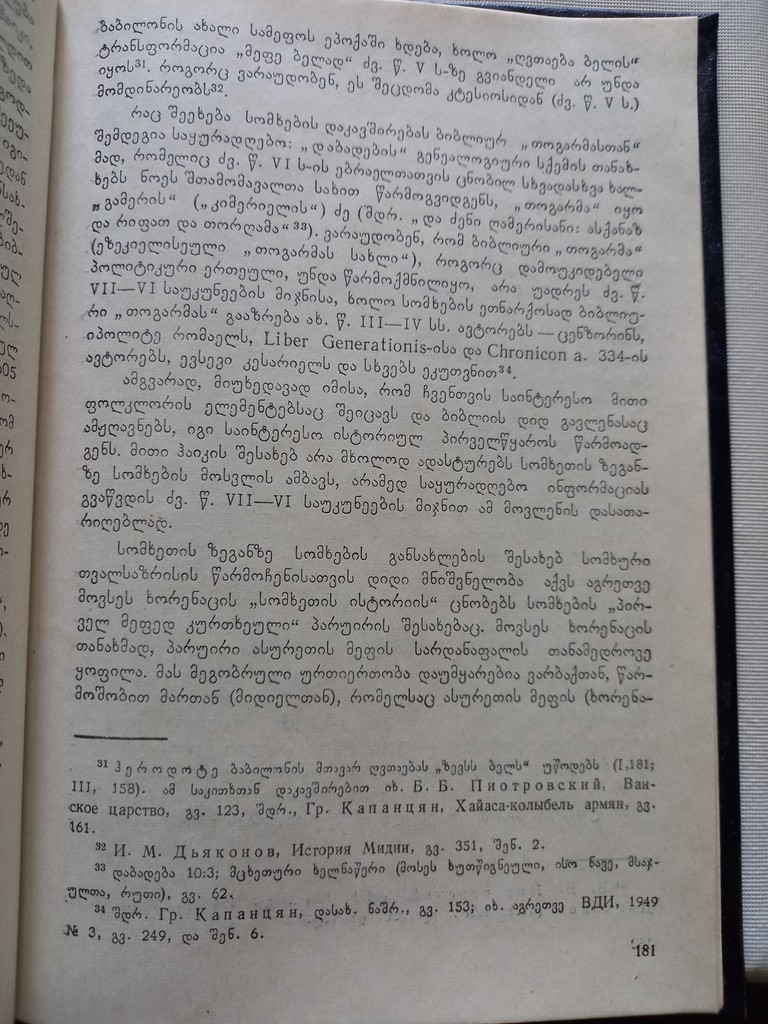 ბაბილონის ახალი სამეფოს ეპოქაში ხდება, ხოლო „ღვთაება ბელის“
ტრანსფორმაცია „მეფე ბელად“ ძვ. წ. V ს-ზე გვიანდელი არ უნდა
იყოს³¹. როგორც ვარაუდობენ, ეს შეცდომა კტესიოსიდან (ძვ. წ. V ს.)
მომდინარეობს³².
რაც შეეხება სომხების დაკავშირებას ბიბლიურ „თოგარმასთან“
შემდეგია საყურადღებო: „დაბადების“ გენეალოგიური სქემის თანახ-
მად, რომელიც ძვ. წ. VI ს-ის ებრაელთათვის ცნობილ სხვადასხვა ხალ-
ხებს ნოეს შთამომავალთა სახით წარმოგვიდგენს, „თოგარმა“ იყო
„გამერის“ („კიმერიელის“) ძე (შდრ. „და ძენი ღამერისანი: ასქანაზ
და რიფათ და თორღამა“³³). ვარაუდობენ, რომ ბიბლიური „თოგარმა“
(ეზეკიელისეული „თოგარმას სახლი“), როგორც დამოუკიდებელი
პოლიტიკური ერთეული, უნდა წარმოქმნილიყო, არა უადრეს ძვ. წ.
VII—VI საუკუნეების მიჯნისა, ხოლო სომხების ეთნარქოსად ბიბლიუ-
რი „თოგარმას“ გააზრება ახ. წ. III—IV სს. ავტორებს — ცენზორინს,
იპოლიტე რომაელს, Liber Generationis-ისა და Chronicon a. 334-ის
ავტორებს, ევსევი კესარიელს და სხვებს ეკუთვნით³⁴.
ამგვარად, მიუხედავად იმისა, რომ ჩვენთვის საინტერესო მითი
ფოლკლორის ელემენტებსაც შეიცავს და ბიბლიის დიდ გავლენასაც
ამჟღავნებს, იგი საინტერესო ისტორიულ პირველწყაროს წარმოად-
გენს. მითი ჰაიკის შესახებ არა მხოლოდ ადასტურებს სომხეთის ზეგან-
ზე სომხების მოსვლის ამბავს, არამედ საყურადღებო ინფორმაციას
გვაწვდის ძვ. წ. VII—VI საუკუნეების მიჯნით ამ მოვლენის დასათა-
რიღებლად.
სომხეთის ზეგანზე სომხების განსახლების შესახებ სომხური
თვალსაზრისის წარმოჩენისათვის დიდი მნიშვნელობა აქვს აგრეთვე
მოვსეს ხორენაცის „სომხეთის ისტორიის“ ცნობებს სომხების „პირ-
ველ მეფედ კურთხეული“ პარუირის შესახებაც. მოვსეს ხორენაცის
თანახმად, პარუირი ასურეთის მეფის სარდანაფალის თანამედროვე
ყოფილა. მას მეგობრული ურთიერთობა დაუმყარებია ვარბაქთან, წარ-
მოშობით მართან (მიდიელთან), რომელსაც ასურეთის მეფის (ხორენა-
³¹ ჰეროდოტე ბაბილონის მთავარ ღვთაებას „ზევსს ბელს“ უწოდებს (I,181;
III, 158). ამ საკითხთან დაკავშირებით იხ. Б. Б. Пиотровский, Ван-
ское царство, გვ. 123, შდრ., Гр. Капанцян, Хайаса-колыбель армян, გვ.
161.
³² И. М. Дьяконов, История Мидии, გვ. 351, შენ. 2.
³³ დაბადება 10:3; მცხეთური ხელნაწერი (მოსეს ხუთწიგნეული, ისო ნავე, მსაჯ-
ულთა, რუთი), გვ. 62.
³⁴ შდრ. Гр. Капанцян, დასახ. ნაშრ., გვ. 153; იხ. აგრეთვე ВДИ, 1949
№ 3, გვ. 249, და შენ. 6.
181